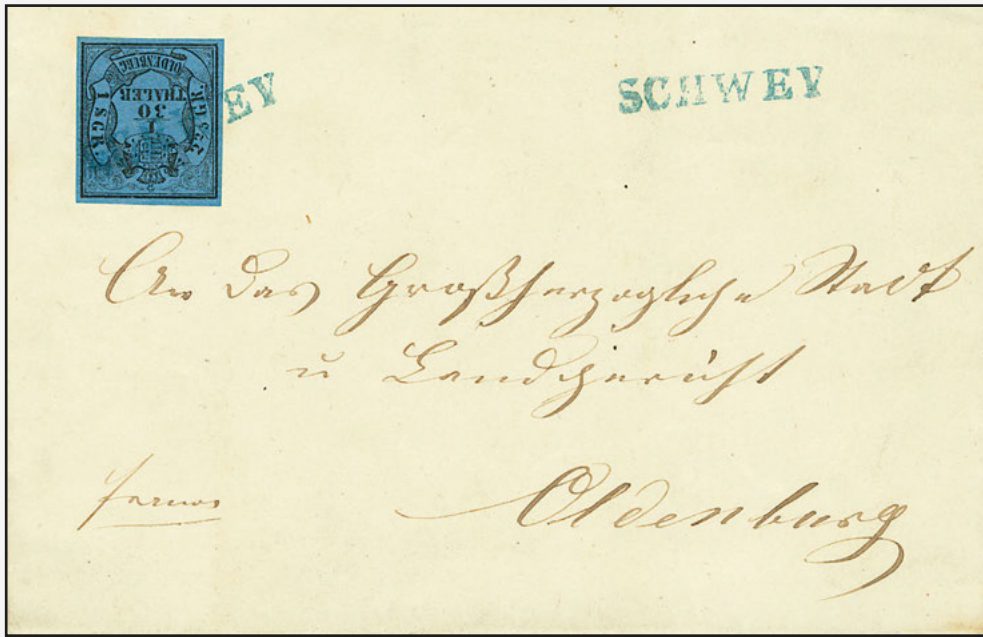 OLDENBURG
THALER
30
1
1 SGR.
2⅖ S GR.
EY
SCHWEY
An das Großherzogliche Stadt
u Landgericht
Oldenburg